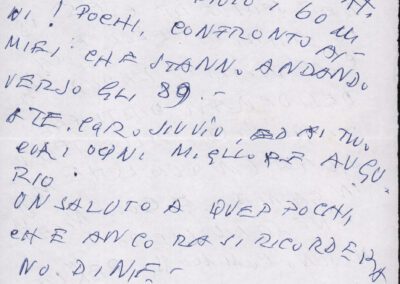 60
NI! POCHI, CONFRONTO AI
MIEI CHE STANNO ANDANDO
VERSO GLI 89.-
A TE, CARO SILVIO, ED AI TUOI
CARI OGNI MIGLIORE AUGU-
RIO.
UN SALUTO A QUEI POCHI,
CHE ANCORA SI RICORDERAN
NO. DI ME.-